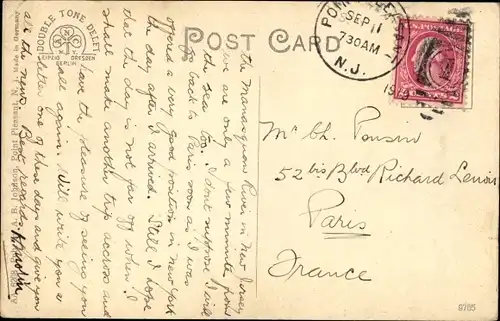 DOUBLE TONE DELFT
LEIPZIG DRESDEN
BERLIN
POST CARD
SEP 11
730 AM
N.J.
19
U.S. POSTAGE
the Manasquan River in New Jersey
we are only a few minutes from
the sea too. I dont suppose I will
go back to Paris soon as I was
offered a very good position in New York
the day after I arrived. Still I hope
that the day is not far off when I
shall make another trip across and
have the pleasure of seeing you
all again. Will write you a
letter one of these days and give you
all the news. Best regards
Mr Ch. Ponsin
52 bis Blvd Richard Lenoir
Paris
France
Point Pleasant, N. J. Made in Germany
9765